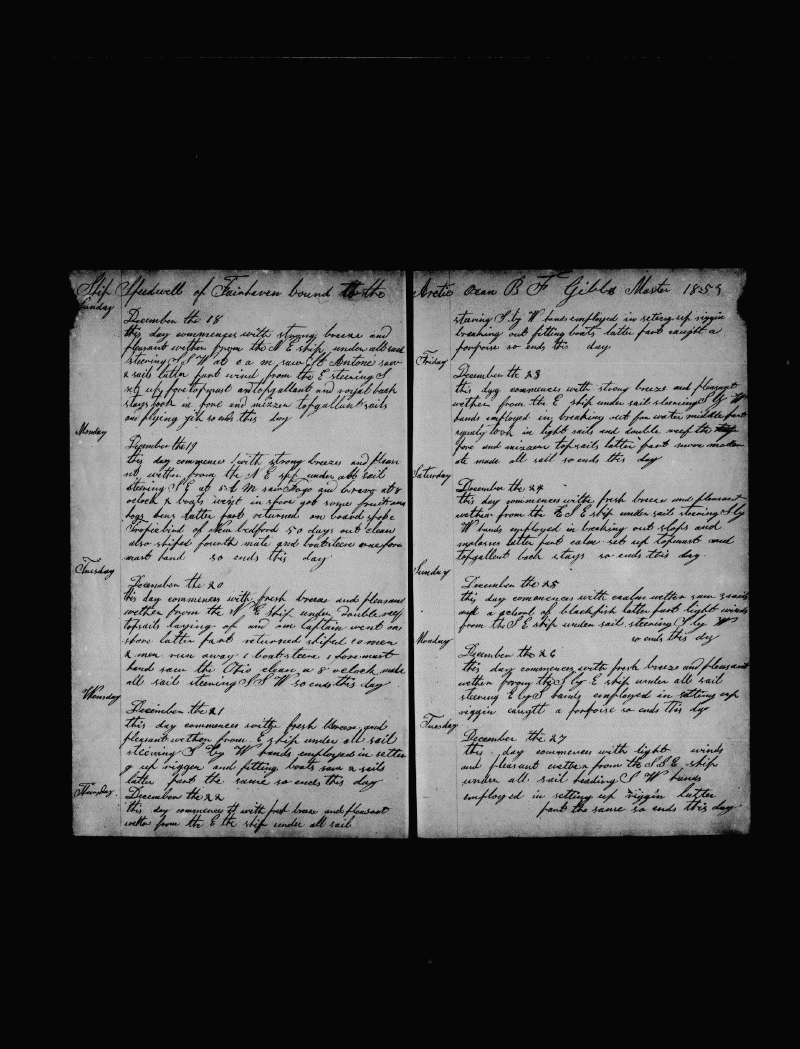 Ship Speedwell of Fairhaven bound to the
Sunday
December the 18
this day commences with strong breeze and
pleasant wether from the N E ship under all sail
steering S S W at 0 a m saw St Antonie saw
2 sails latter part wind from the E steering S
set up foretopgast and topgallant and royal back
stays took in fore and mizzen topgallant sails
and flying jib so ends this day
Monday
December the 19
this day commences with strong breezes and pleas
nt wether from the N E ship under all sail
steering S E at 5 A M saw Fogo and bravo at 8
oclock 2 boats went in shore got some fruit and
hogs hens latter part returned on board spoke
Tropic bird of New bedford 50 days out clean
also shiped fourth mate and boatsteere one fore
mast hand so ends this day
Tuesday
December the 20
this day commences with fresh breeze and pleasant
wether from the N E ship under double reef
topsails laying of and on Captain went on
shore latter part returned shiped 10 men
2 men run away 1 boatsteere 1 foremast
hand saw the Ohio clean a 8 oclock made
all sail steering S S W so ends this day
Wensday
December the 21
this day commences with fresh breeze and
pleasant wether from E ship under all sail
steering S by W hands employed in setten
g up riggen and fitting boats saw 2 sails
latter part the same so ends this day
Thursday
December the 22
this day commences with fresh breeze and pleasant
wether from the E the ship under all sail
Arctic ocan B F Gibbs Master 1853
staring S by W hands employed in seting up riggin
breaking out fitting boats latter part caught a
porpoise so ends this day
Friday
December the 23
this day commences with strong breeze and pleasant
wether from the E ship under sail steering S by W
hands employed in breaking out for water middle part
squaly took in light sails and double reef the
fore and mizzen topsails latter part more moder
ate made all sail so ends this day
Saturday
December the 24
this day commences with fresh breeze and pleasant
wether from the E S E ship under sail steering S by
W hands employed in breaking out slops and
molasses latter part calm set up topmast and
topgallent back stays so ends this day
Sunday
December the 25
this day comences with calm wether saw 2 sails
and a school of blackfish latter part light winds
from the S E ship under sail steering S by W
so ends this day
Monday
December the 26
this day commences with fresh breeze and pleasant
wether from the S by E ship under all sail
steering E by S hands employed in setting up
riggin caught a porpoise so ends this day
Tuesday
December the 27
this day commences with light winds
and pleasent wether from the S S E ship
under all sail heading S W hands
employed in setting up riggin latter
part the same so ends this day